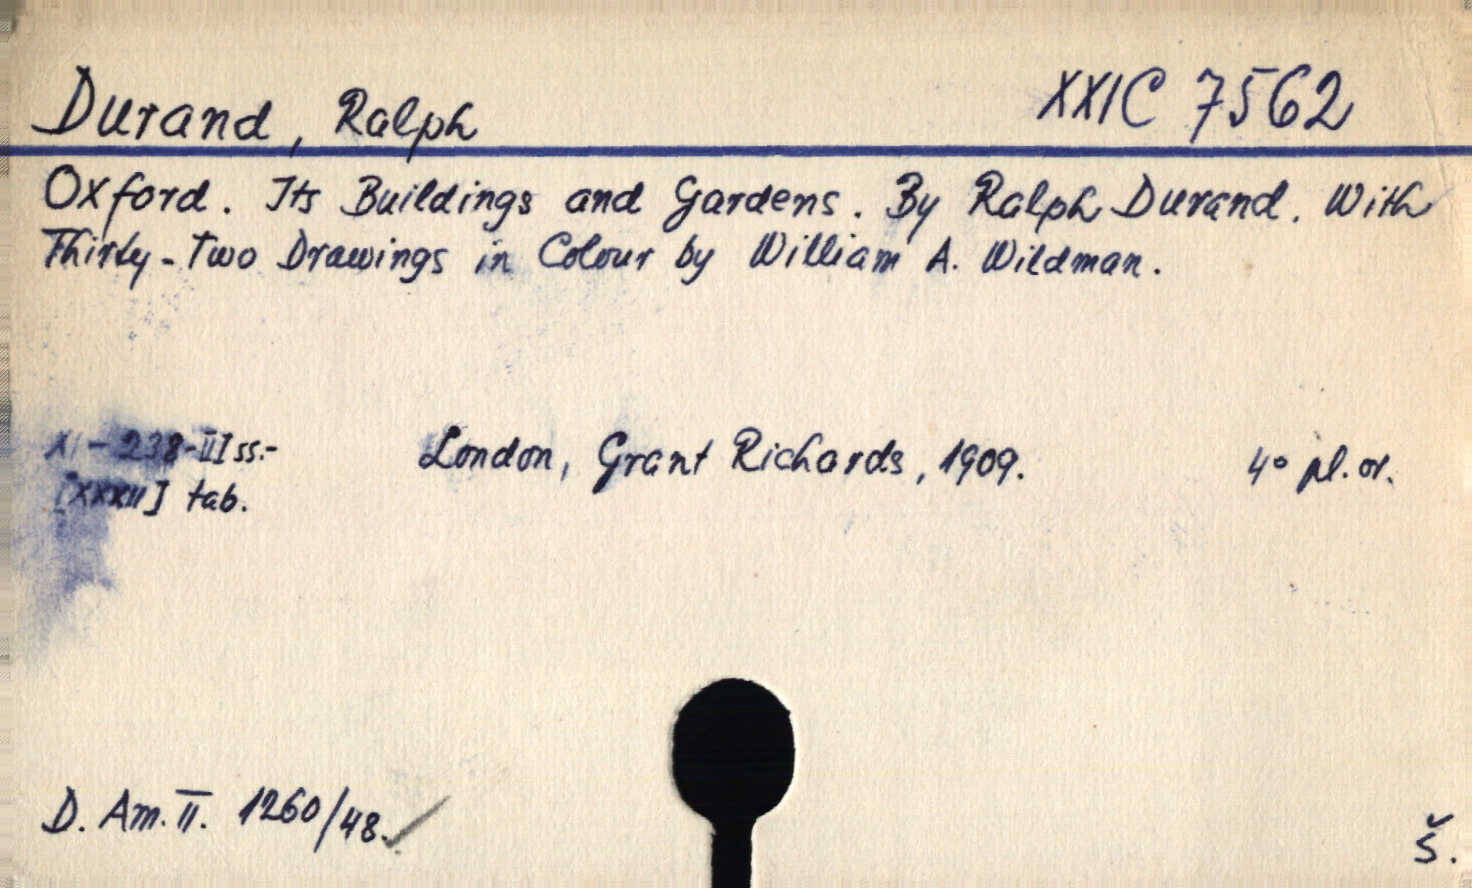 Durand, Ralph
XXIC 7562
Oxford. Its Buildings and Gardens. By Ralph Durand. With
Thirty-Two Drawings in Colour by William A. Wildman.
XI-238-II ss.-
London, Grant Richards, 1909.
4° pl. or.
[XXXII] tab.
D. Am. II. 1260/48.
Š.